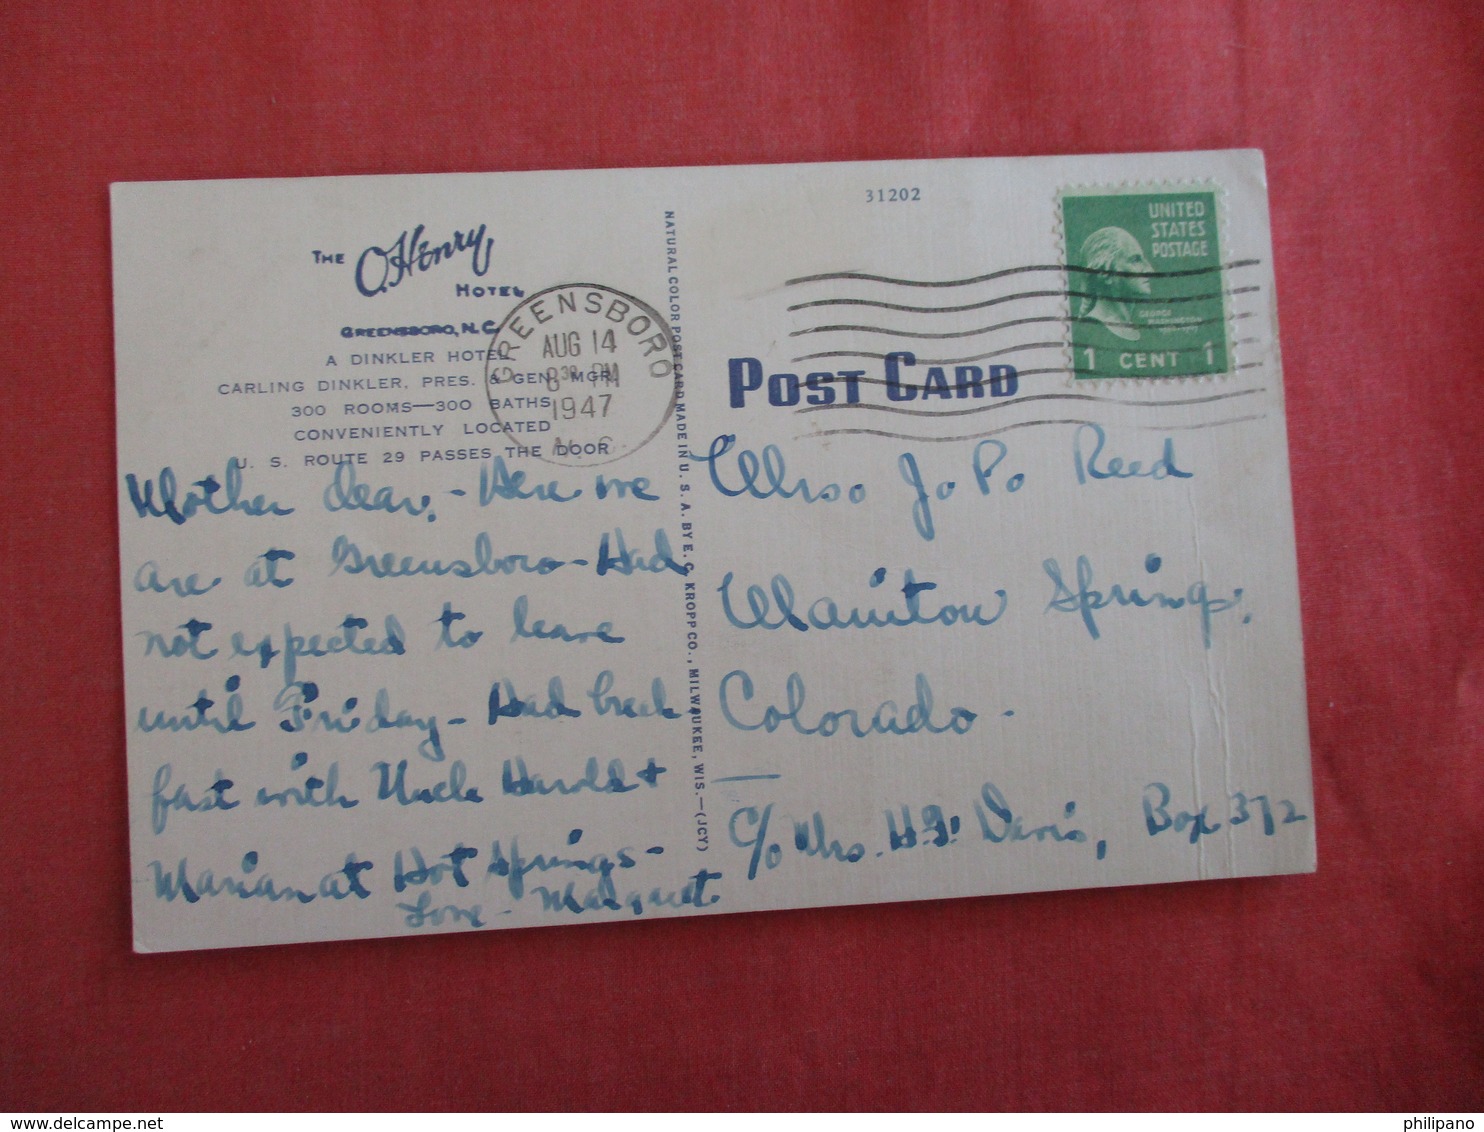 31202
THE O. Henry
HOTEL
GREENSBORO, N.C.
A DINKLER HOTEL
CARLING DINKLER, PRES. & GEN. MGR.
300 ROOMS—300 BATHS
CONVENIENTLY LOCATED
U. S. ROUTE 29 PASSES THE DOOR
GREENSBORO
AUG 14
8 30 PM
1947
N. C.
Mother dear, - Here we
are at Greensboro - Had
not expected to leave
until Friday - Had break
fast with Uncle Harold +
Marian at Hot Springs -
Love - Margaret
NATURAL COLOR POST CARD MADE IN U. S. A. BY E. C. KROPP CO., MILWAUKEE, WIS.—(JCY)
UNITED
STATES
POSTAGE
GEORGE
WASHINGTON
1 CENT 1
POST CARD
Mrs. J. P. Reed
Manitou Springs.
Colorado -
c/o Mrs. H. F. Davis, Box 372
philipano
delcampe.net